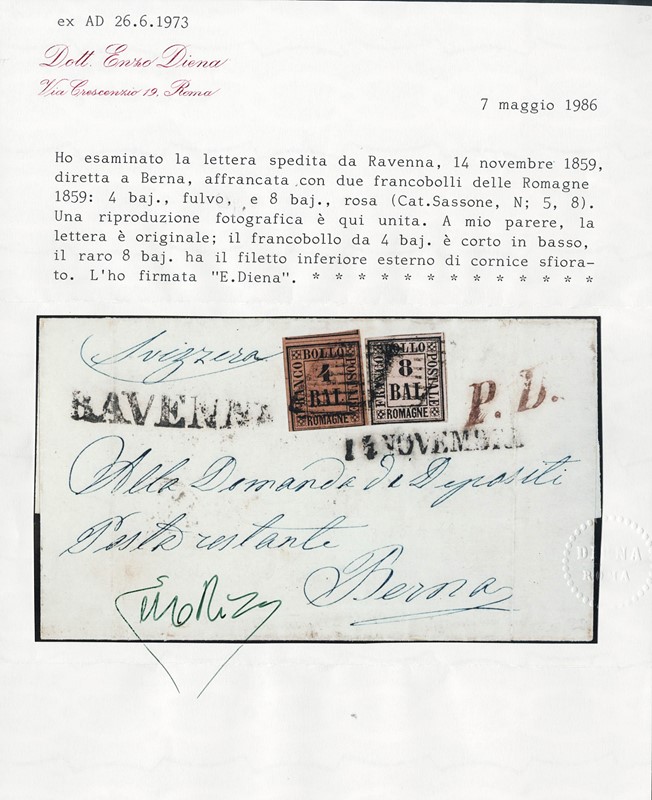 ex AD 26.6.1973
Dott. Enzo Diena
Via Crescenzio 19, Roma
7 maggio 1986
Ho esaminato la lettera spedita da Ravenna, 14 novembre 1859,
diretta a Berna, affrancata con due francobolli delle Romagne
1859: 4 baj., fulvo, e 8 baj., rosa (Cat.Sassone, N; 5, 8).
Una riproduzione fotografica è qui unita. A mio parere, la
lettera è originale; il francobollo da 4 baj. è corto in basso,
il raro 8 baj. ha il filetto inferiore esterno di cornice sfiora-
to. L'ho firmata "E.Diena". * * * * * * * * * * * * *
Svizzera
FRANCO BOLLO POSTALE
4
BAI
ROMAGNE
FRANCO BOLLO POSTALE
8
BAI
ROMAGNE
RAVENNA
P. D.
14 NOVEMBRE
Alla Domanda da Depositi
Posta restante
Berna
DIENA
ROMA